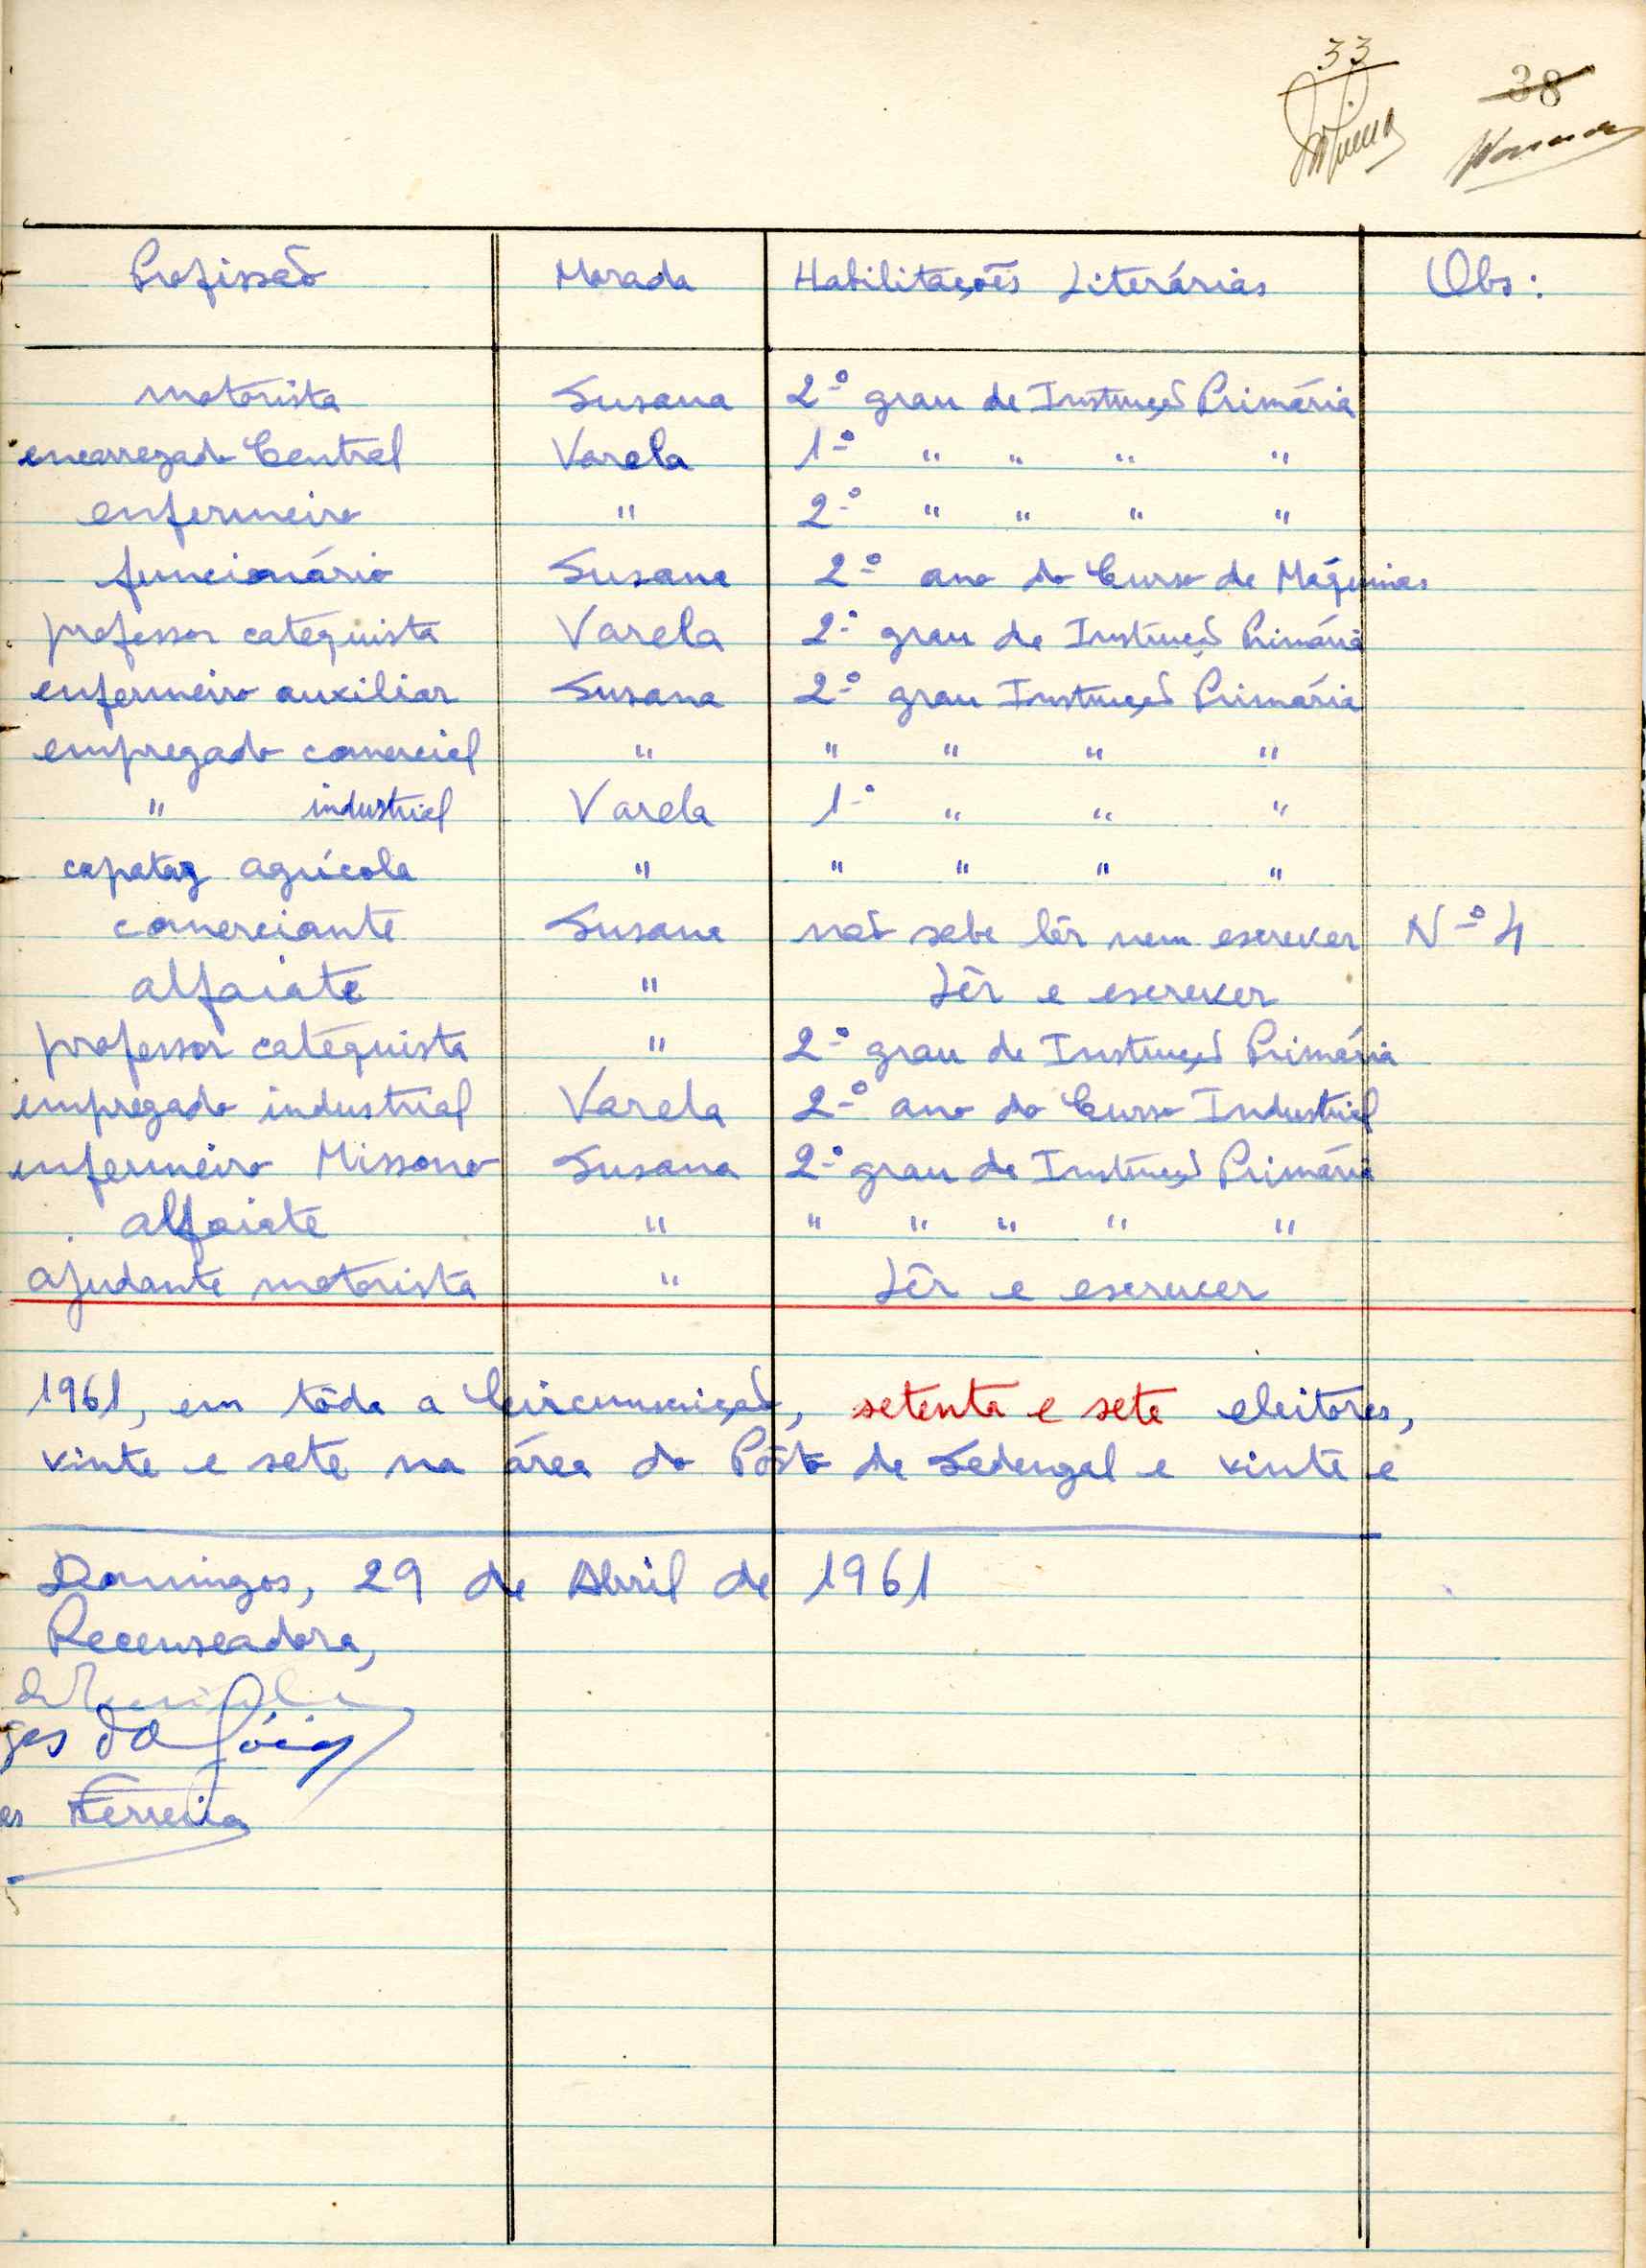 33
38
Profissão Morada Habilitações Literárias Obs:
motorista Susana 2º grau de Instrução Primária
encarregado Central Varela 1º " " " "
enfermeiro " 2º " " " "
funcionário Susana 2º ano do Curso de Máquinas
professor catequista Varela 2º grau de Instrução Primária
enfermeiro auxiliar Susana 2º grau Instrução Primária
empregado comercial " " " " "
" industrial Varela 1º " " "
capataz agrícola " " " " "
comerciante Susana não sabe lêr nem escrever Nº 4
alfaiate " Lêr e escrever
professor catequista " 2º grau de Instrução Primária
empregado industrial Varela 2º ano do Curso Industrial
enfermeiro Missono Susana 2º grau de Instrução Primária
alfaiate " " " " " "
ajudante motorista " Lêr e escrever
1961, em tôda a Circunscrição, setenta e sete eleitores,
vinte e sete na área do Pôsto de Sedengal e vinte e
Domingos, 29 de Abril de 1961
Recenseadora,
ges da Góis
es Ferreira